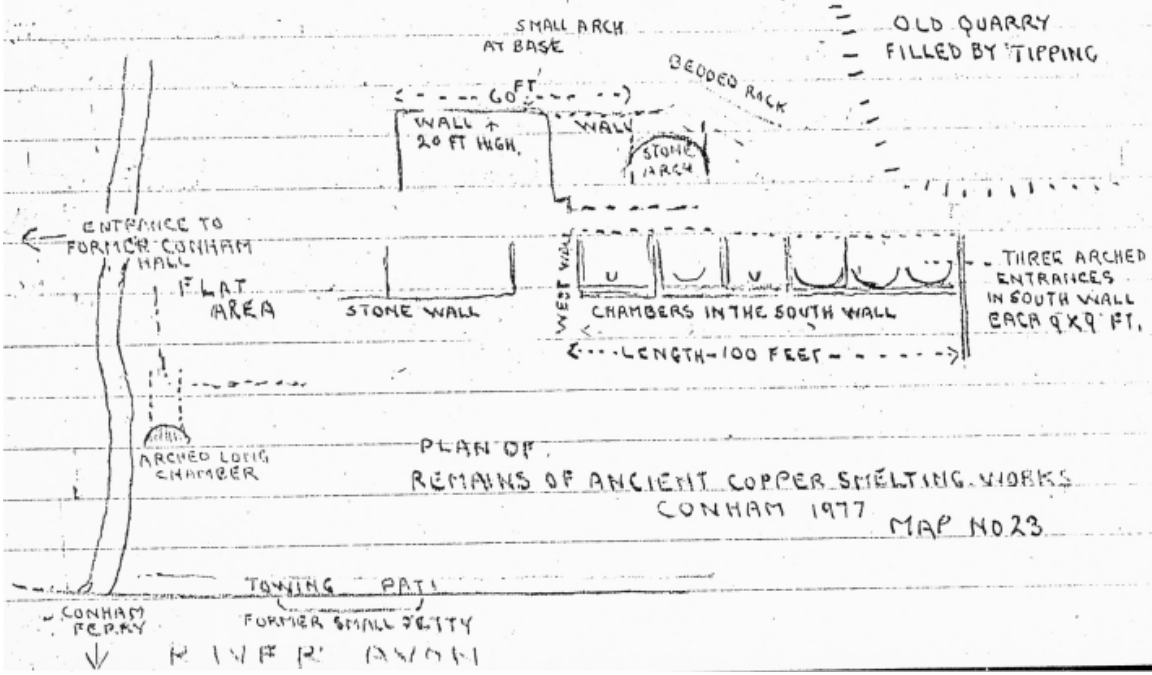 SMALL ARCH
AT BASE
OLD QUARRY
FILLED BY TIPPING
BEDDED ROCK
60 FT
WALL +
20 FT HIGH.
WALL
STONE
ARCH
ENTRANCE TO
FORMER CONHAM
HALL
FLAT
AREA
STONE WALL
WEST WALL
CHAMBERS IN THE SOUTH WALL
LENGTH-100 FEET
THREE ARCHED
ENTRANCES
IN SOUTH WALL
EACH 9'X9' FT.
ARCHED LONG
CHAMBER
PLAN OF
REMAINS OF ANCIENT COPPER SMELTING WORKS
CONHAM 1977
MAP NO 23
TOWING PATH
CONHAM
FERRY
FORMER SMALL JETTY
RIVER AVON